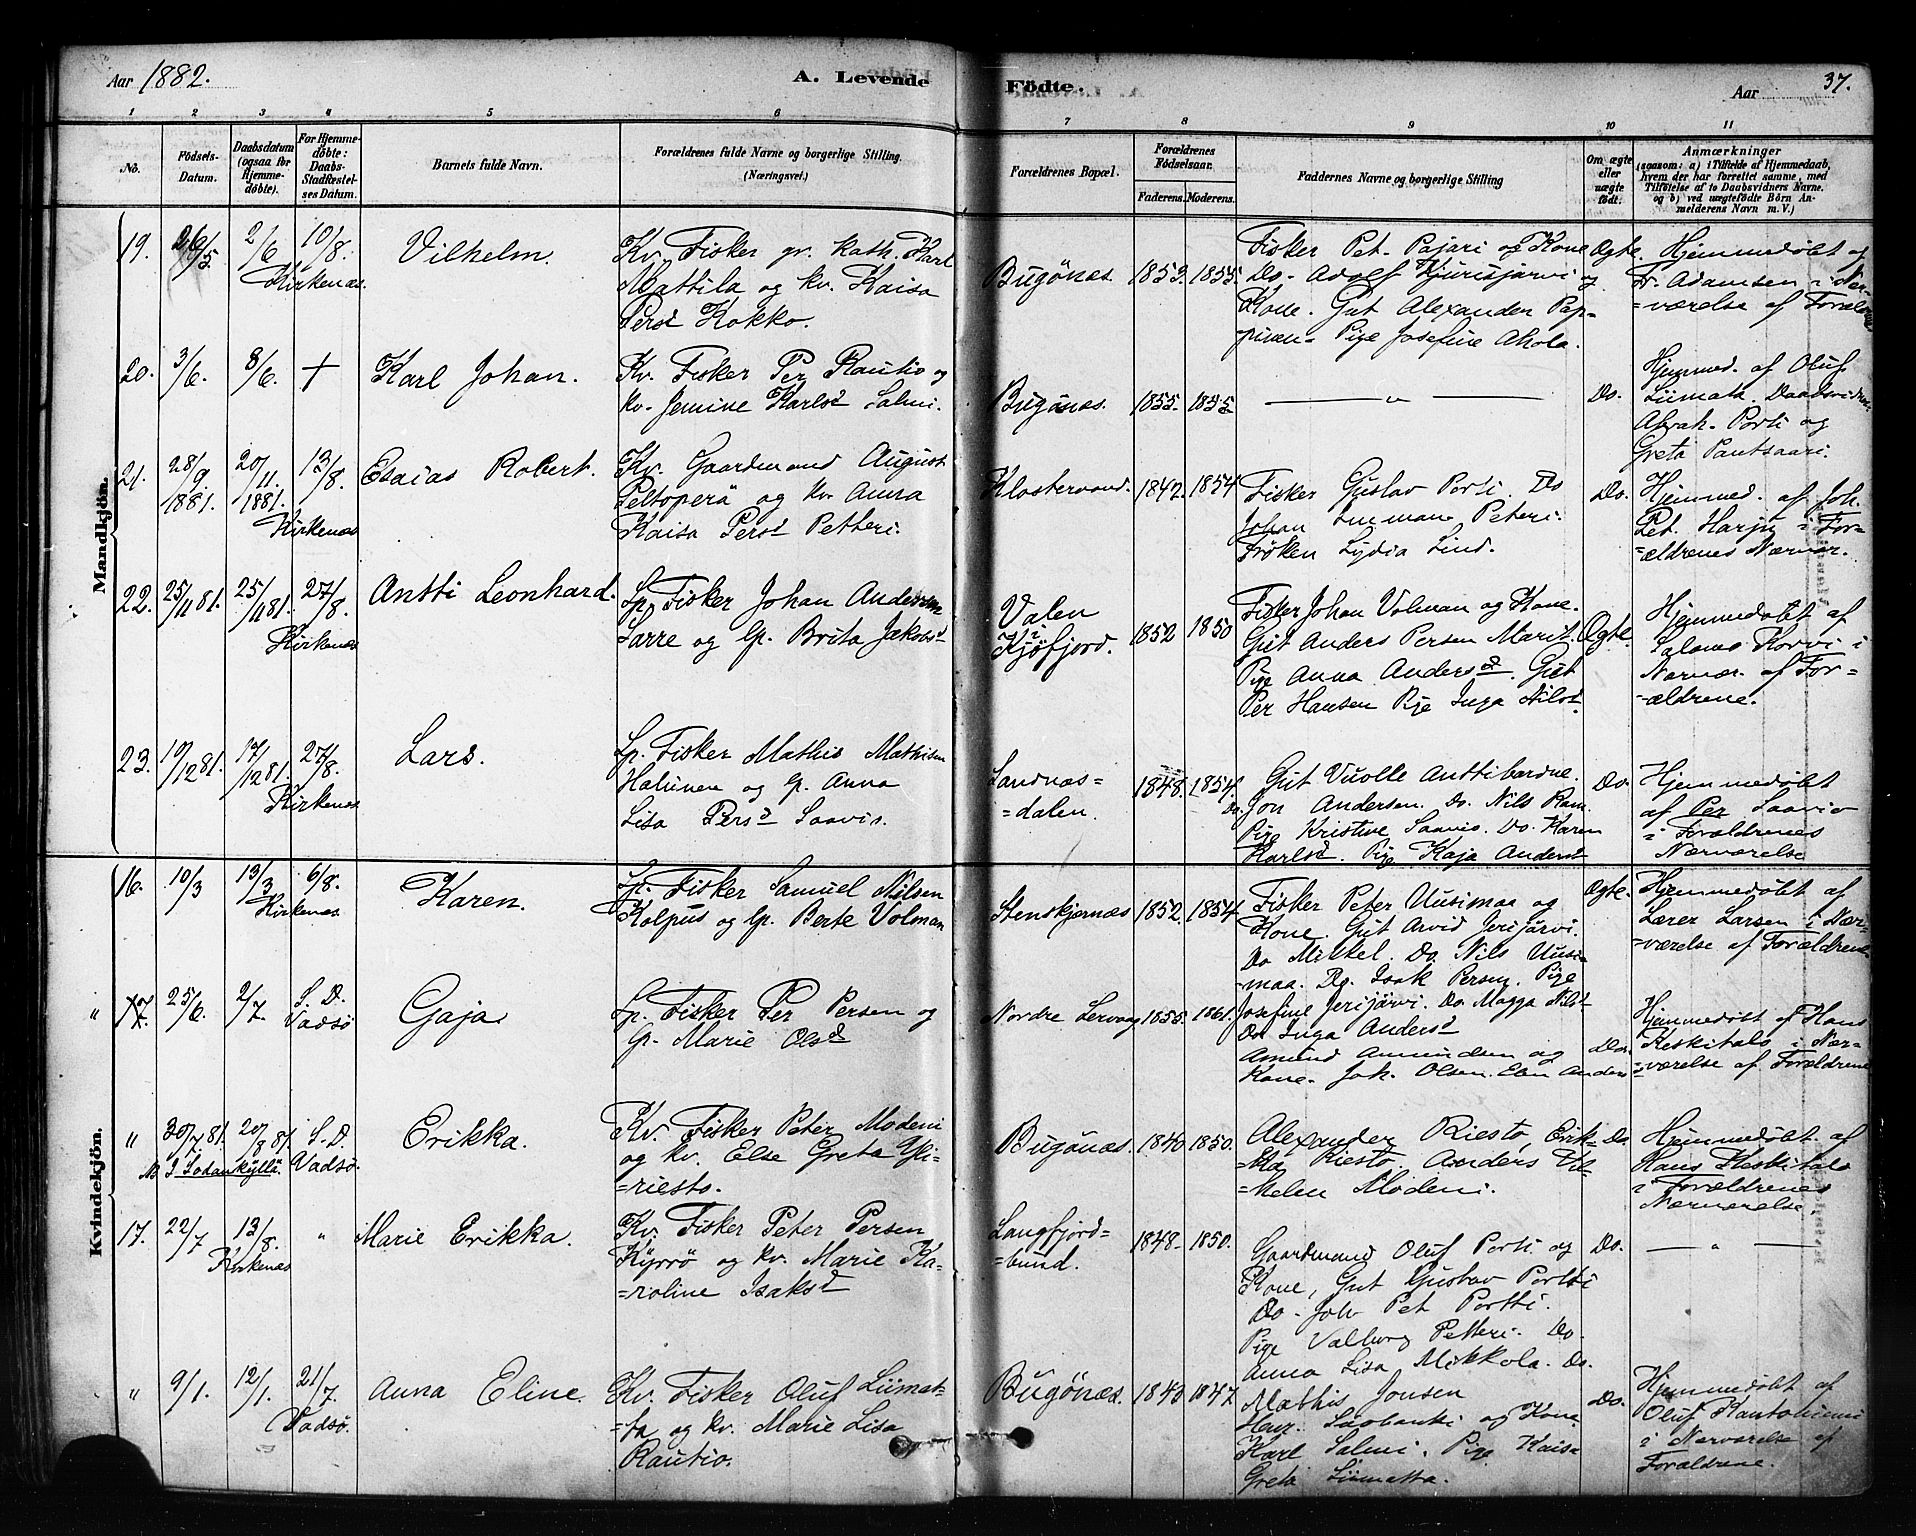 Aar 1882. A. Levende Födte. Aar 37.
1 2 3 4 5 6 7 8 9 10 11
No. Födsels-Datum. Daabsdatum (ogsaa for Hjemmedöbte). For Hjemmedöbte: Daabs-Stadfæstelses Datum. Barnets fulde Navn. Forældrenes fulde Navne og borgerlige Stilling. (Næringsvei.) Forældrenes Bopæl. Forældrenes Födselsaar. Faderens. Moderens. Faddernes Navne og borgerlige Stilling Om ægte eller uægte födt. Anmærkninger (saasom: a) i Tilfælde af Hjemmedaab, hvem der har forrettet samme, med Tilföielse af to Daabsvidners Navne, og b) ved uægtefödte Börn Anmelderens Navn m. V.)
Mandkjön.
19. 2/6 10/8. Kirkenæs. Vilhelm.
Kv. Fisker gr. kath. Karl
Mattila og kv. Kaisa
Persd Kokko.
Bugönes 1853. 1855.
Fisker Pet. Pajari og Kone
Do. Adolf Kjurisjarvi og
Kone. Gut Alexander Pap-
pinen. Pige Josefine Ahola.
Ogte.
Hjemmedöbt af
Fr. Adamsen i Nær-
=værelse af Forældrene
20. 3/6. 8/6. + Karl Johan.
Kv. Fisker Per Rautio og
kv. Jemine Karlsd Salmi.
Bugönes. 1855. 1855. — " — Do.
Hjemmed. af Oluf
Liimatt. Daabsvidner
Abrah. Porti og
Greta Pantsaari.
21. 28/9. 1881. 20/11. 1881. 13/8. Kirkenæs Esaias Robert.
Kv. Gaardmand August
Peltoperä og kv. Anna
Kaisa Persd Petteri.
Klostervand. 1842. 1854
Fisker Gustav Porti. Do
Johan Inmane Peteri.
Fröken Lydia Lind.
Do.
Hjemmed. af Joh.
Ped. Harju i For-
=ældrenes Nærvær.
22. 25/11 81. 25/11 81. 27/8. Kirkenæs Antti Leonhard.
Lp. Fisker Johan Andersen
Sarre og lp. Brita Jakobsd
Valen i Kjöfjord. 1852 1850
Fisker Johan Volman og Kone.
Gut Anders Persen Marit.
Pige Anna Andersd. Gut
Per Hansen Pige Inga Nilsd.
Ogte.
Hjemmedöbt af
Salamo Korvi i
Nærvær. af For-
=ældrene.
23. 19/12 81. 17/12 81. 27/8. Kirkenæs Lars.
Lp. Fisker Mathis Mathisen
Halunen og lp. Anna
Lisa Persd Saavis.
Sandnæs-
=dalen. 1848. 1854.
Gut Vuolle Anttibardne.
Do. Jon Andersen. Do. Nils Ram.
Pige Kristine Saavis. Do. Karen
Karlsd. Pige Kaja Andersd
Do.
Hjemmedöbt
af Per Saavio
i Forældrenes
Nærværelse
Kvindekjön.
16. 10/3 13/3 6/8. Kirkenæs Karen.
Lp. Fisker Samuel Nilsen
Kolpus og lp. Berte Volman
Stenskjernæs 1852. 1854
Fisker Peter Uusimaa og
Kone. Gut Arvid Jerijärvi.
Do Mikkel. Do. Nils Uusi-
maa. Do. Isak Persen. Pige
Josefine Jerijärvi. Do. Magga Nilsd
Do Inga Andersd
Ogte.
Hjemmedöbt af
Lærer Larsen i Nær-
=værelse af Forældrene
" 17. 25/6. 2/7 S. D. Vadsö Gaja.
Lp. Fisker Per Persen og
lp. Marie Olsd
Nordre Lervaag 1855. 1861.
Amund Amundsen og
Kone. Joh. Olsen. Elen Anders
Do.
Hjemmedöbt af Hans
Keskitalo i Nær-
=værelse af Forældrene
" 30/7 81. 20/8 81. S. D. Vadsö. Erikka.
NB I Sodankylä.
Kv. Fisker Peter Modeni
og kv. Else Greta Yli-
=riesto.
Bugönæs. 1840 1850.
Alexander Riesto, Erik-
=ka Riesto Anders Vil-
=helm Modeni.
Do.
Hjemmedöbt af
Hans Keskitalo
i Forældrenes
Nærværelse.
17. 22/7 13/8. Kirkenæs " Marie Erikka.
Kv. Fisker Peter Persen
Kyrrö og kv. Marie Ka-
=roline Isaksd
Langfjord-
=bund. 1848. 1850.
Gaardmand Oluf Porti og
Kone, Gut Gustav Portti
Do. Joh Pet Portti.
Pige Valborg Petteri. Do.
Anna Lisa Mikkola. Do.
Do. — " —
" 9/1. 12/1. 21/7. Vadsö. Anna Eline.
Kv. Fisker Oluf Liimat-
=ta og kv. Marie Lisa
Rautio.
Bugönæs. 1843 1847.
Mathis Jonsen
Kone
Karl Salmi. Pige Kaisa
Greta Liimatta.
Do.
Hjemmedöbt af
Oluf Rantoniemi
i Nærværelse af
Forældrene.